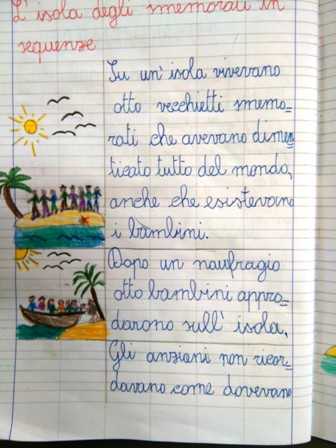 L'isola degli smemorati in
sequenze
Su un'isola vivevano
otto vecchietti smemo=
rati che avevano dimen
ticato tutto del mondo,
anche che esistevano
i bambini.
Dopo un naufragio
otto bambini appro=
darono sull'isola.
Gli anziani non ricor=
davano come dovevano